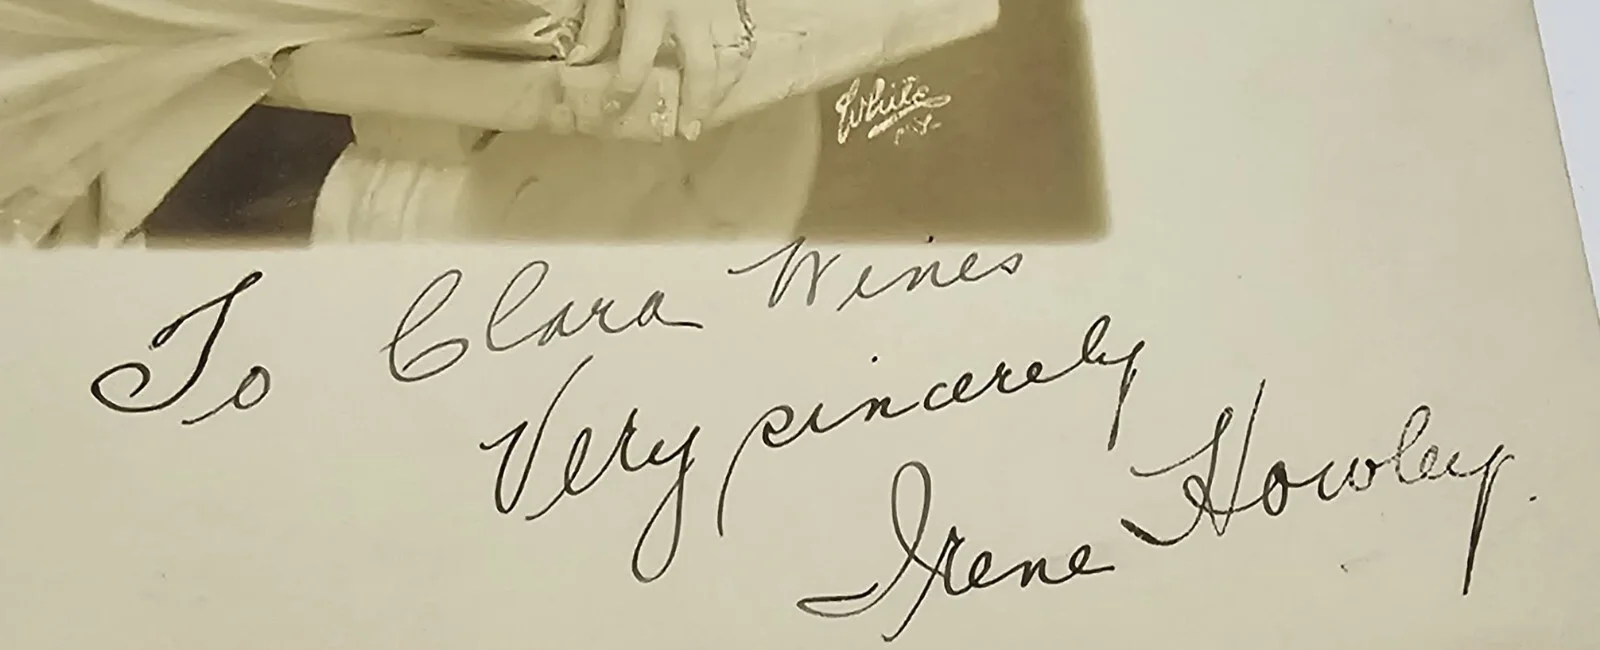 White
N.Y.
To Clara Wines
Very sincerely
Irene Howley.